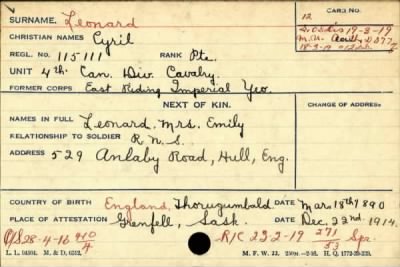 SURNAME. Leonard
CARDS
12
CHRISTIAN NAMES Cyril
REGL. No. 115111 RANK Pte.
UNIT 4th. Can. Div. Cavalry.
FORMER CORPS East Riding Imperial Yeo.
NEXT OF KIN.
CHANGE OF ADDRESS
NAMES IN FULL Leonard, Mrs. Emily
RELATIONSHIP TO SOLDIER
ADDRESS 529 Anlaby Road, Hull, Eng.
COUNTRY OF BIRTH England, Thorugumbald DATE Mar. 18th 1890
PLACE OF ATTESTATION Grenfell, Sask. DATE Dec. 22nd. 1914.
O/S 28-4-16 410/A R/C 23-2-19 271/53 Spr.
M. F. W. 22.